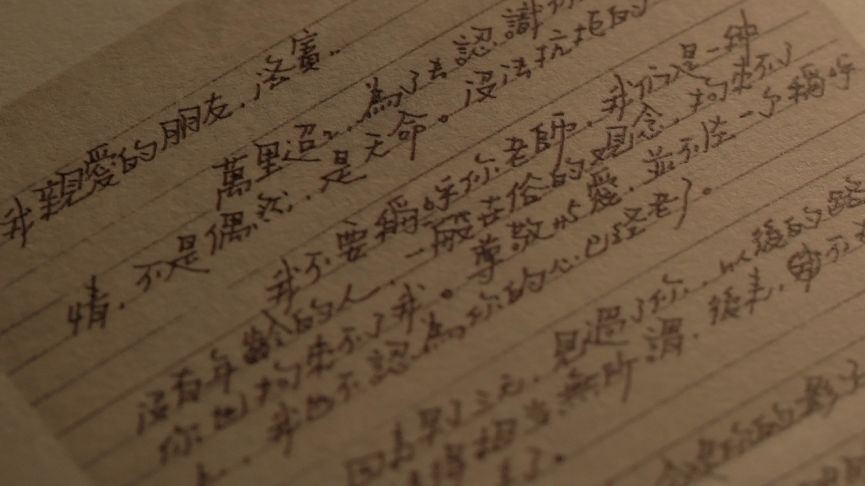 我親愛的朋友，洛賓：
萬里迢迢，為了去認識
情，不是偶然，是天命。沒法抗拒的
我不要稱呼你老師，我們是一种
沒有年齡的人，一般世俗的觀念，拘束不了
你也拘束不了我。尊敬与愛，並不在一个稱呼
上，我也不認為你的心已经老了。
回來早了三天，見過了你，以後的路
得相当無所謂，後來，
你的影子